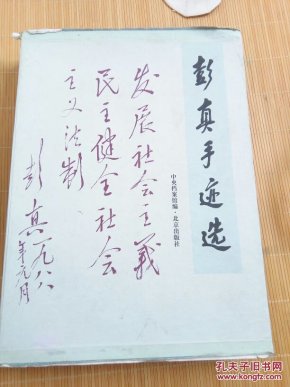 彭真手迹选
中央档案馆编·北京出版社
发展社会主義
民主健全社会
主义法制
彭真一九八八
年元月
孔夫子旧书网